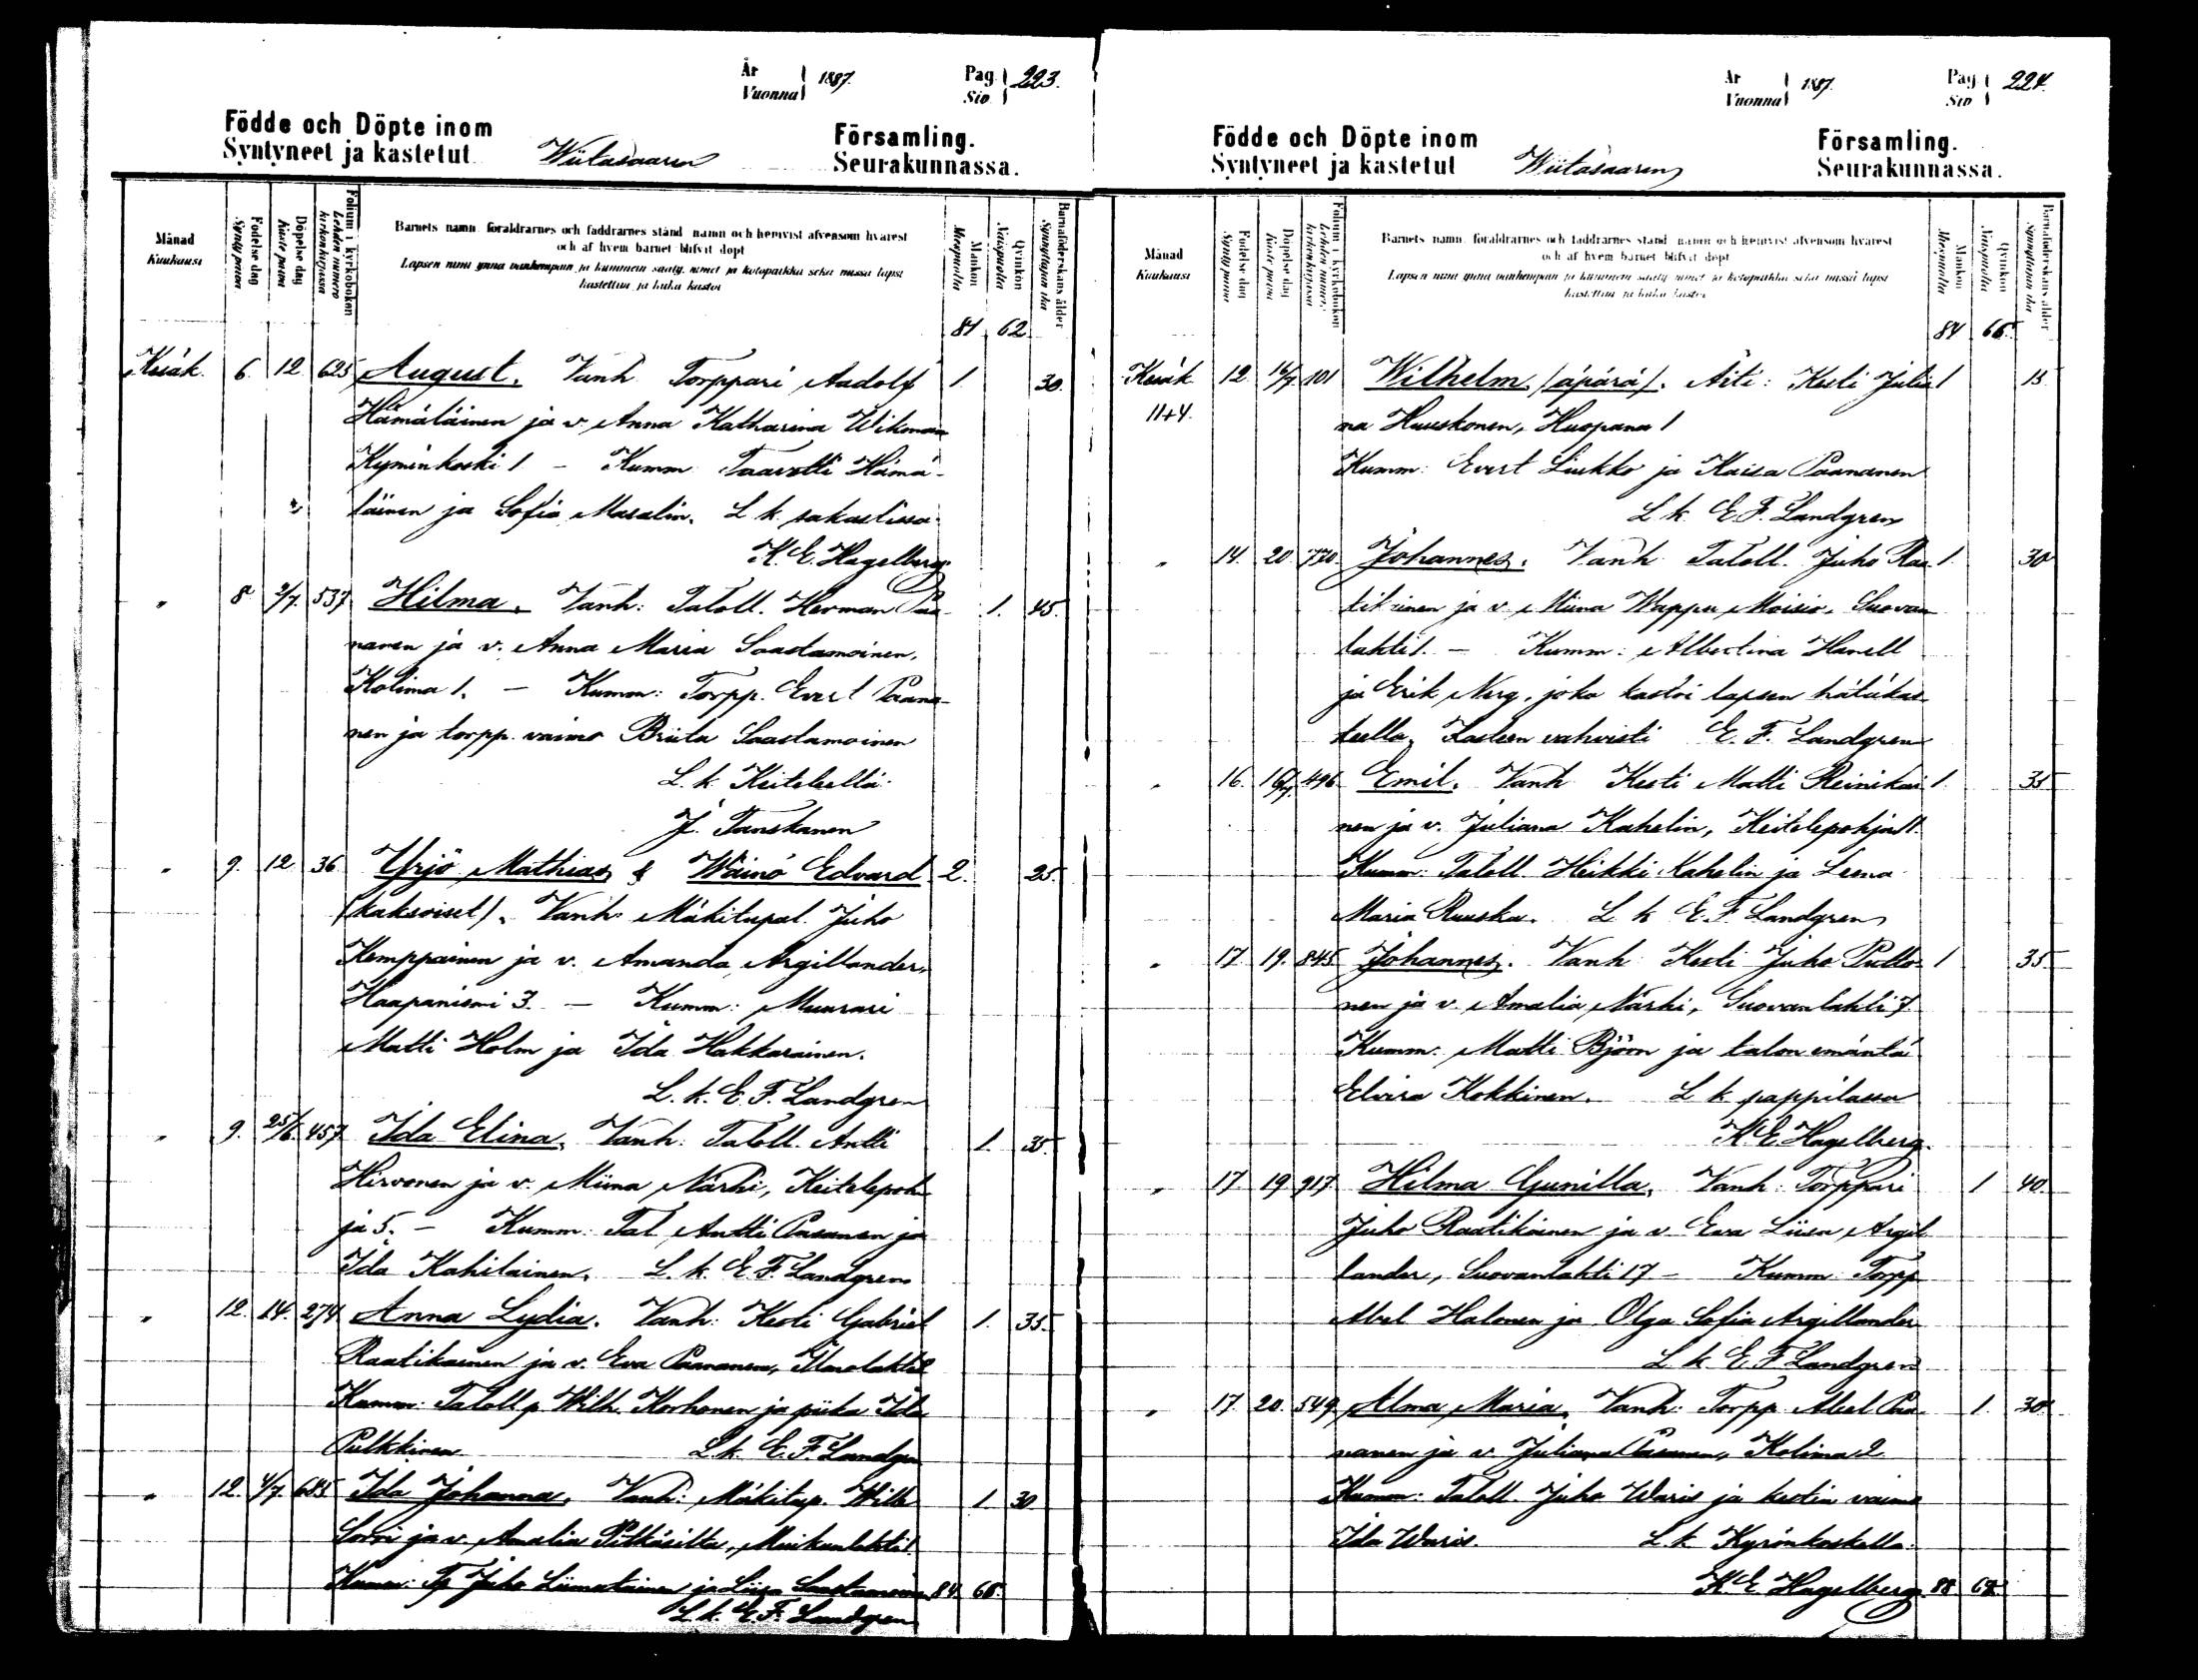 År
Vuonna } 1887.
Pag.
Siv. } 223.
Födde och Döpte inom
Syntyneet ja kastetut Wiitasaaren
Församling.
Seurakunnassa.
Månad
Kuukausi
Födelse dag
Synty päivä
Döpelse dag
Kaste päivä
Folium i kyrkoboken
Lehden numero kirkonkirjassa
Barnets namn, föräldrarnes och faddrarnes stånd, namn och hemvist äfvensom hvarest
och af hvem barnet blifvit döpt
Lapsen nimi ynnä vanhempain ja kummein sääty, nimet ja kotopaikka sekä missä lapsi
kastettiin ja kuka kastoi
Mankön
Miespuolia
Qvinkön
Naispuolia
Barnaföderskans ålder
Synnyttäjän ikä
81 62
Kesäk. 6. 12 625 August. Vanh. Torppari Aadolf 1. 30.
Hämäläinen ja v. Anna Katharina Wikman
Kyminkoski 1 - Kumm. Taavetti Hämä-
läinen ja Sofia Masalin. L. k. sakastissa
K. E. Hagelberg.
" 8 2/7. 537 Hilma. Vanh: Taloll. Herman Paa- 1. 45.
nanen ja v. Anna Maria Saastamoinen,
Kolima 1. - Kumm: Torpp. Evert Paana-
nen ja torpp. vaimo Briita Saastamoinen
L. k. Keiteleellä
J. Tanskanen
" 9. 12 36 Yrjö Mathias & Wäinö Edvard 2. 25.
(kaksoiset). Vanh: Mäkitupal. Juho
Kemppainen ja v. Amanda Argillander,
Haapaniemi 3. - Kumm: Muurari
Matti Holm ja Ida Hakkarainen.
L. k. E. F. Landgren
" 9. 25/6. 457 Ida Elina. Vanh: Taloll. Antti 1. 35.
Hirvonen ja v. Miina Närhi, Keitelepoh-
ja 5. - Kumm: Tal. Antti Pasanen ja
Ida Kahilainen. L. k. E. F. Landgren
" 12. 14. 274 Anna Lydia. Vanh: Kesti Gabriel 1. 35.
Raatikainen ja v. Eva Paananen,
Kumm: Taloll. p. Wilh. Korhonen ja piika Ida
Pulkkinen L. k. E. F. Landgren
" 12. 4/7. 685 Ida Johanna. Vanh: Mäkitup. Wilh 1. 30
Sorri ja v. Amalia Pitkäsilta,
Kumm: Juho Liimatainen ja Liisa Saastamoinen 84. 66.
L. k. E. F. Landgren
År
Vuonna } 1887.
Pag.
Siv. } 224.
Födde och Döpte inom
Syntyneet ja kastetut Wiitasaaren
Församling.
Seurakunnassa.
Månad
Kuukausi
Födelse dag
Synty päivä
Döpelse dag
Kaste päivä
Folium i kyrkoboken
Lehden numero kirkonkirjassa
Barnets namn, föräldrarnes och faddrarnes stånd, namn och hemvist äfvensom hvarest
och af hvem barnet blifvit döpt
Lapsen nimi ynnä vanhempain ja kummein sääty, nimet ja kotopaikka sekä missä lapsi
kastettiin ja kuka kastoi
Mankön
Miespuolia
Qvinkön
Naispuolia
Barnaföderskans ålder
Synnyttäjän ikä
84 66.
Kesäk. 12 16/7. 101 Wilhelm (äpärä). Äiti: Kesti Julia- 1 15
11+4. na Huuskonen, Huopana 1
Kumm: Evert Liukko ja Kaisa Paananen
L. k. E. F. Landgren
" 14. 20. 770. Johannes. Vanh: Taloll. Juho Raa- 1. 30
tikainen ja v. Miina Wappu Moisio, Suovan-
lahti 1. - Kumm: Albertina Hanell
ja Erik Nerg, joka kastoi lapsen hätäkas-
teella. Kasteen vahvisti E. F. Landgren
" 16. 16/7. 496 Emil. Vanh: Kesti Matti Reinikai- 1. 35
nen ja v. Juliana Kahelin, Keitelepohja 11.
Kumm: Taloll. Heikki Kahelin ja Leena
Maria Ruuska. L. k. E. F. Landgren
" 17. 19. 845 Johannes. Vanh: Kesti Juho Putto- 1 35
nen ja v. Amalia Närhi, Suovanlahti 7.
Kumm: Matti Björn ja talon emäntä
Elvira Kokkinen. L. k. pappilassa
K. E. Hagelberg.
" 17. 19 917 Hilma Gunilla. Vanh: Torppari 1 40
Juho Raatikainen ja v. Eva Liisa Argil-
lander, Suovanlahti 17 - Kumm: Torpp
Abel Halonen ja Olga Sofia Argillander
L. k. E. F. Landgren
" 17. 20. 549 Alma Maria. Vanh: Torpp. Abel Paa- 1. 30
nanen ja v. Juliana Pasanen, Kolima 2.
Kumm: Taloll. Juho Waris ja kestin vaimo
Ida Waris. L. k. Kyrönkoskella.
K. E. Hagelberg. 88 68